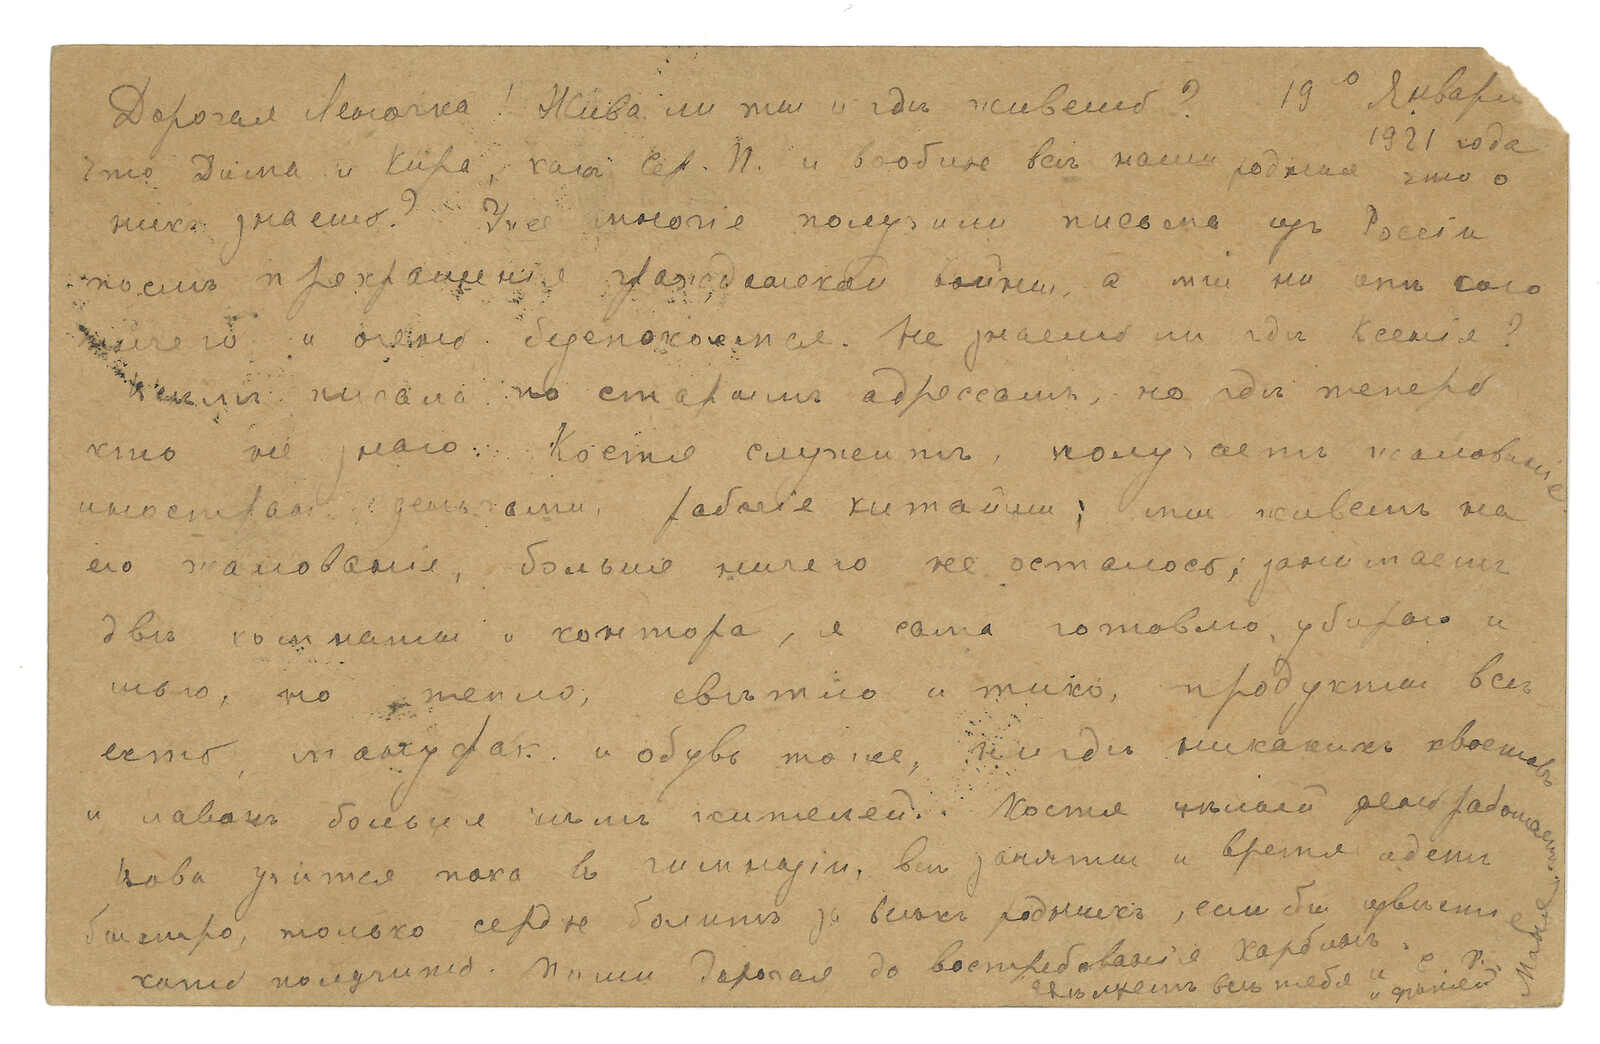 Дорогая Леночка! Жива ли ты и гдѣ живешь? 19го Января
1921 года
что Дима и Кира, какъ Сер. П. и вообще всѣ наши родные что о
нихъ знаешь? Уже многіе получили письма изъ Россіи
послѣ прекращенія гражданской войны, а мы ни отъ кого
ничего и очень безпокоимся. Не знаешь ли гдѣ Ксенія?
Всѣмъ писала по старымъ адрессамъ, но гдѣ теперь
кто не знаю. Костя служитъ, получаетъ жалованіе
иностран. деньгами, рабочіе китайцы; мы живемъ на
его жалованіе, больше ничего не осталось; занимаемъ
двѣ комнаты и контора, я сама готовлю, убираю и
шью, но тепло, свѣтло и тихо, продукты всѣ
есть, мануфак. и обувь тоже, нигдѣ никакихъ хвостовъ
и лавокъ больше чѣмъ жителей. Костя цѣлый день работаетъ,
Вова учится пока въ гимназіи, всѣ заняты и время идетъ
быстро, только сердце болитъ за всѣхъ родныхъ, если бы извѣстіе
хоть получить. Пиши дорогая до востребованія Харбинъ.
цѣлуемъ всѣ тебя и С. П.
и дѣтей
Маня